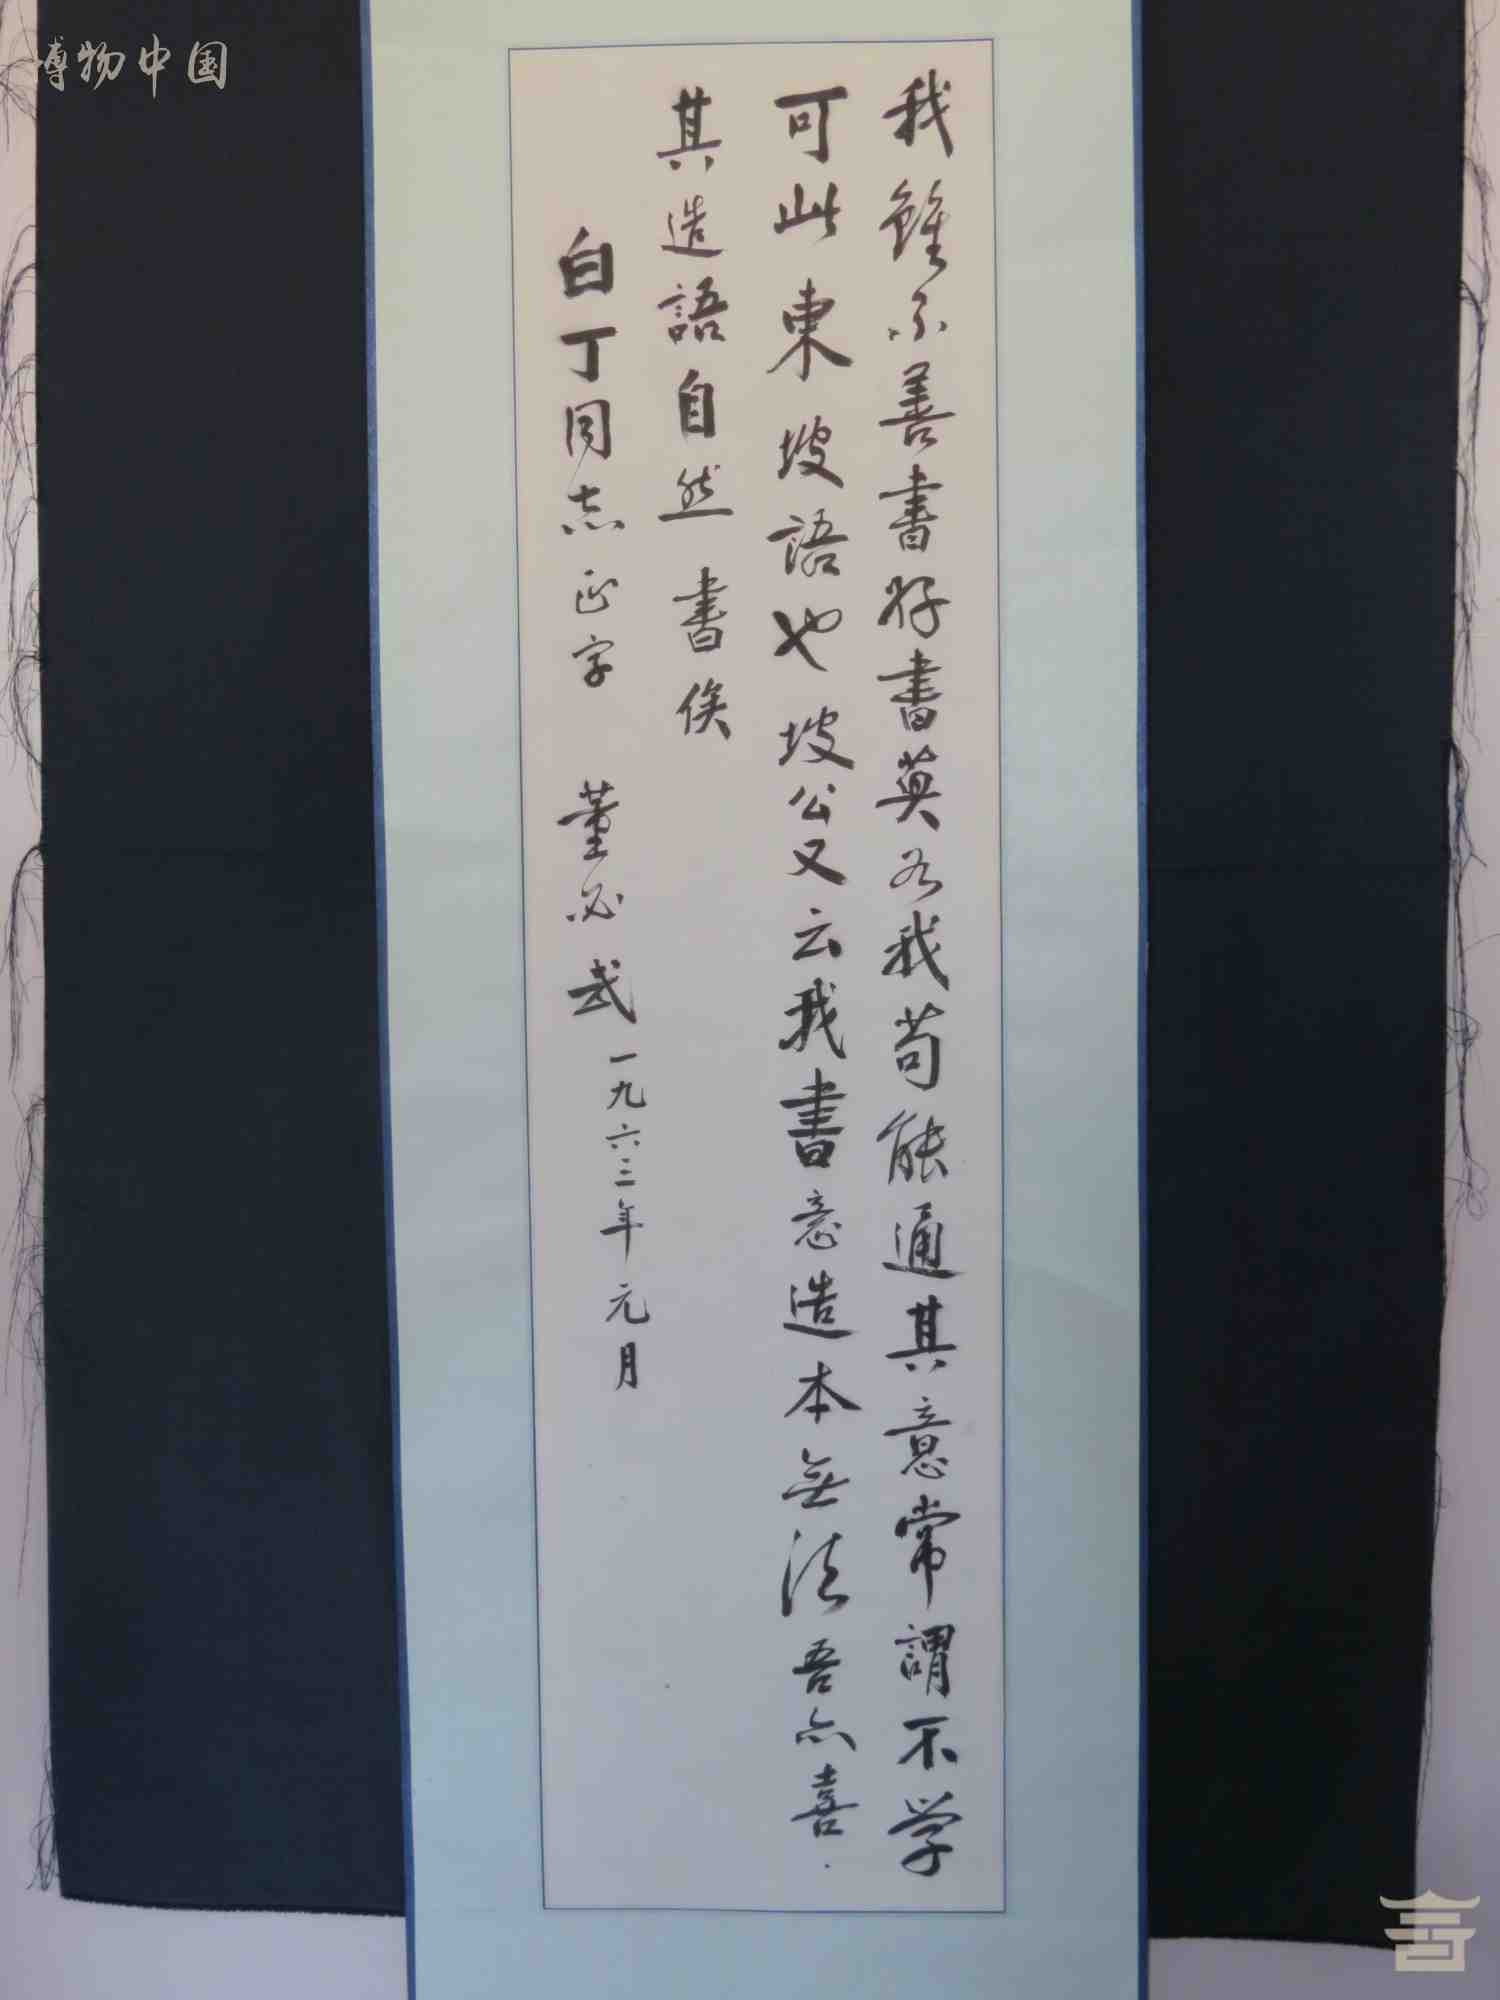 博物中国
我雖不善書好書莫如我苟能通其意常謂不学
可此東坡語也坡公又云我書意造本無法吾亦喜
其造語自然書俟
白丁同志正字
董必武
一九六三年元月